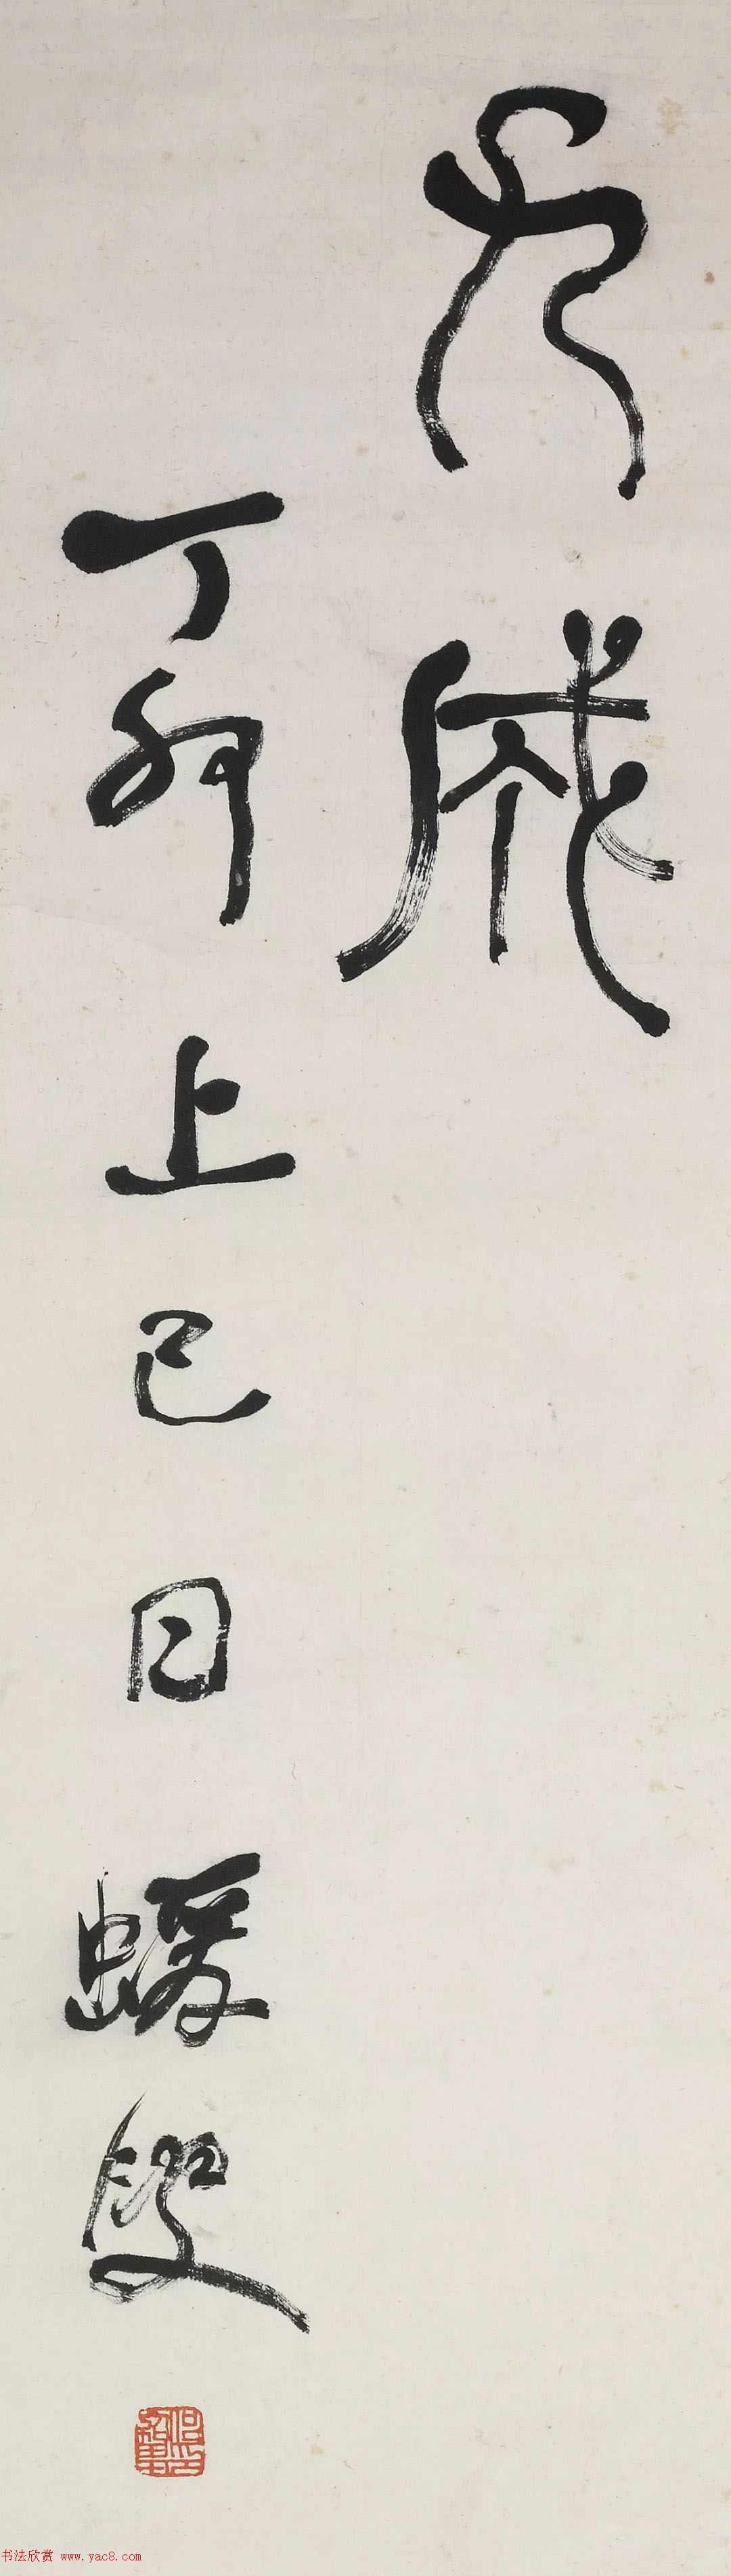 成
丁卯上巳日蝯叟
书法欣赏 www.yac8.com